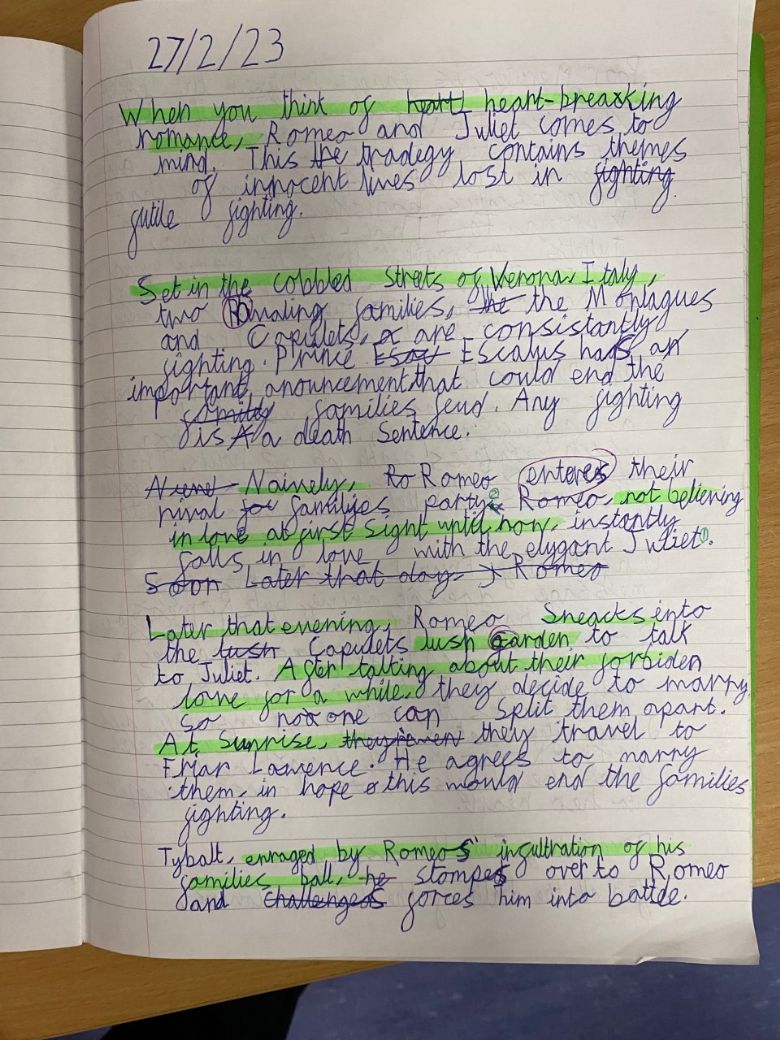 27/2/23
When you think of heart heart-breaking
romance, Romeo and Juliet comes to
mind. This the tradegy contains themes
of innocent lives lost in fighting
futile fighting.
Set in the cobbled streets of Verona Italy,
two families, the the Montagues
and Capulets, are consistantly
fighting. Prince Escalus has an
important anouncement that could end the
family families feud. Any fighting
is a death Sentence.
Naively, Ro Romeo enters their
rival families party. Romeo, not believing
in love at first sight until now, instantly
falls in love with the elygant Juliet.
Soon Later that day Romeo
Later that evening, Romeo Sneaks into
the lush Capulets lush garden to talk
to Juliet. After talking about their forbiden
love for a while, they decide to marry
so no one can split them apart.
At Sunrise, they travel to
Friar Lawence. He agrees to marry
them, in hope this would end the families
fighting.
Tybalt, enraged by Romeos' infultration of his
families ball, he stompes over to Romeo
and challenges forces him into battle.